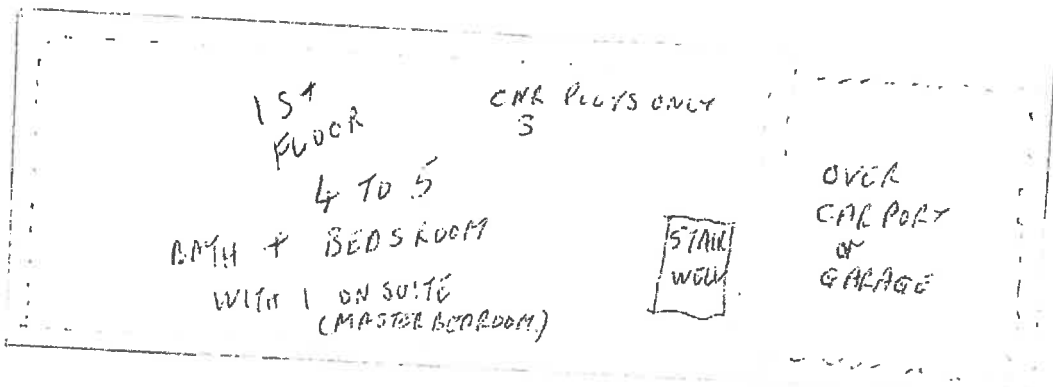 1ST
FLOOR
CNR PLOTS ONLY
3
4 TO 5
BATH + BEDSROOM
WITH 1 ON SUITE
(MASTER BEDROOM)
STAIR
WELL
OVER
CAR PORT
or
GARAGE